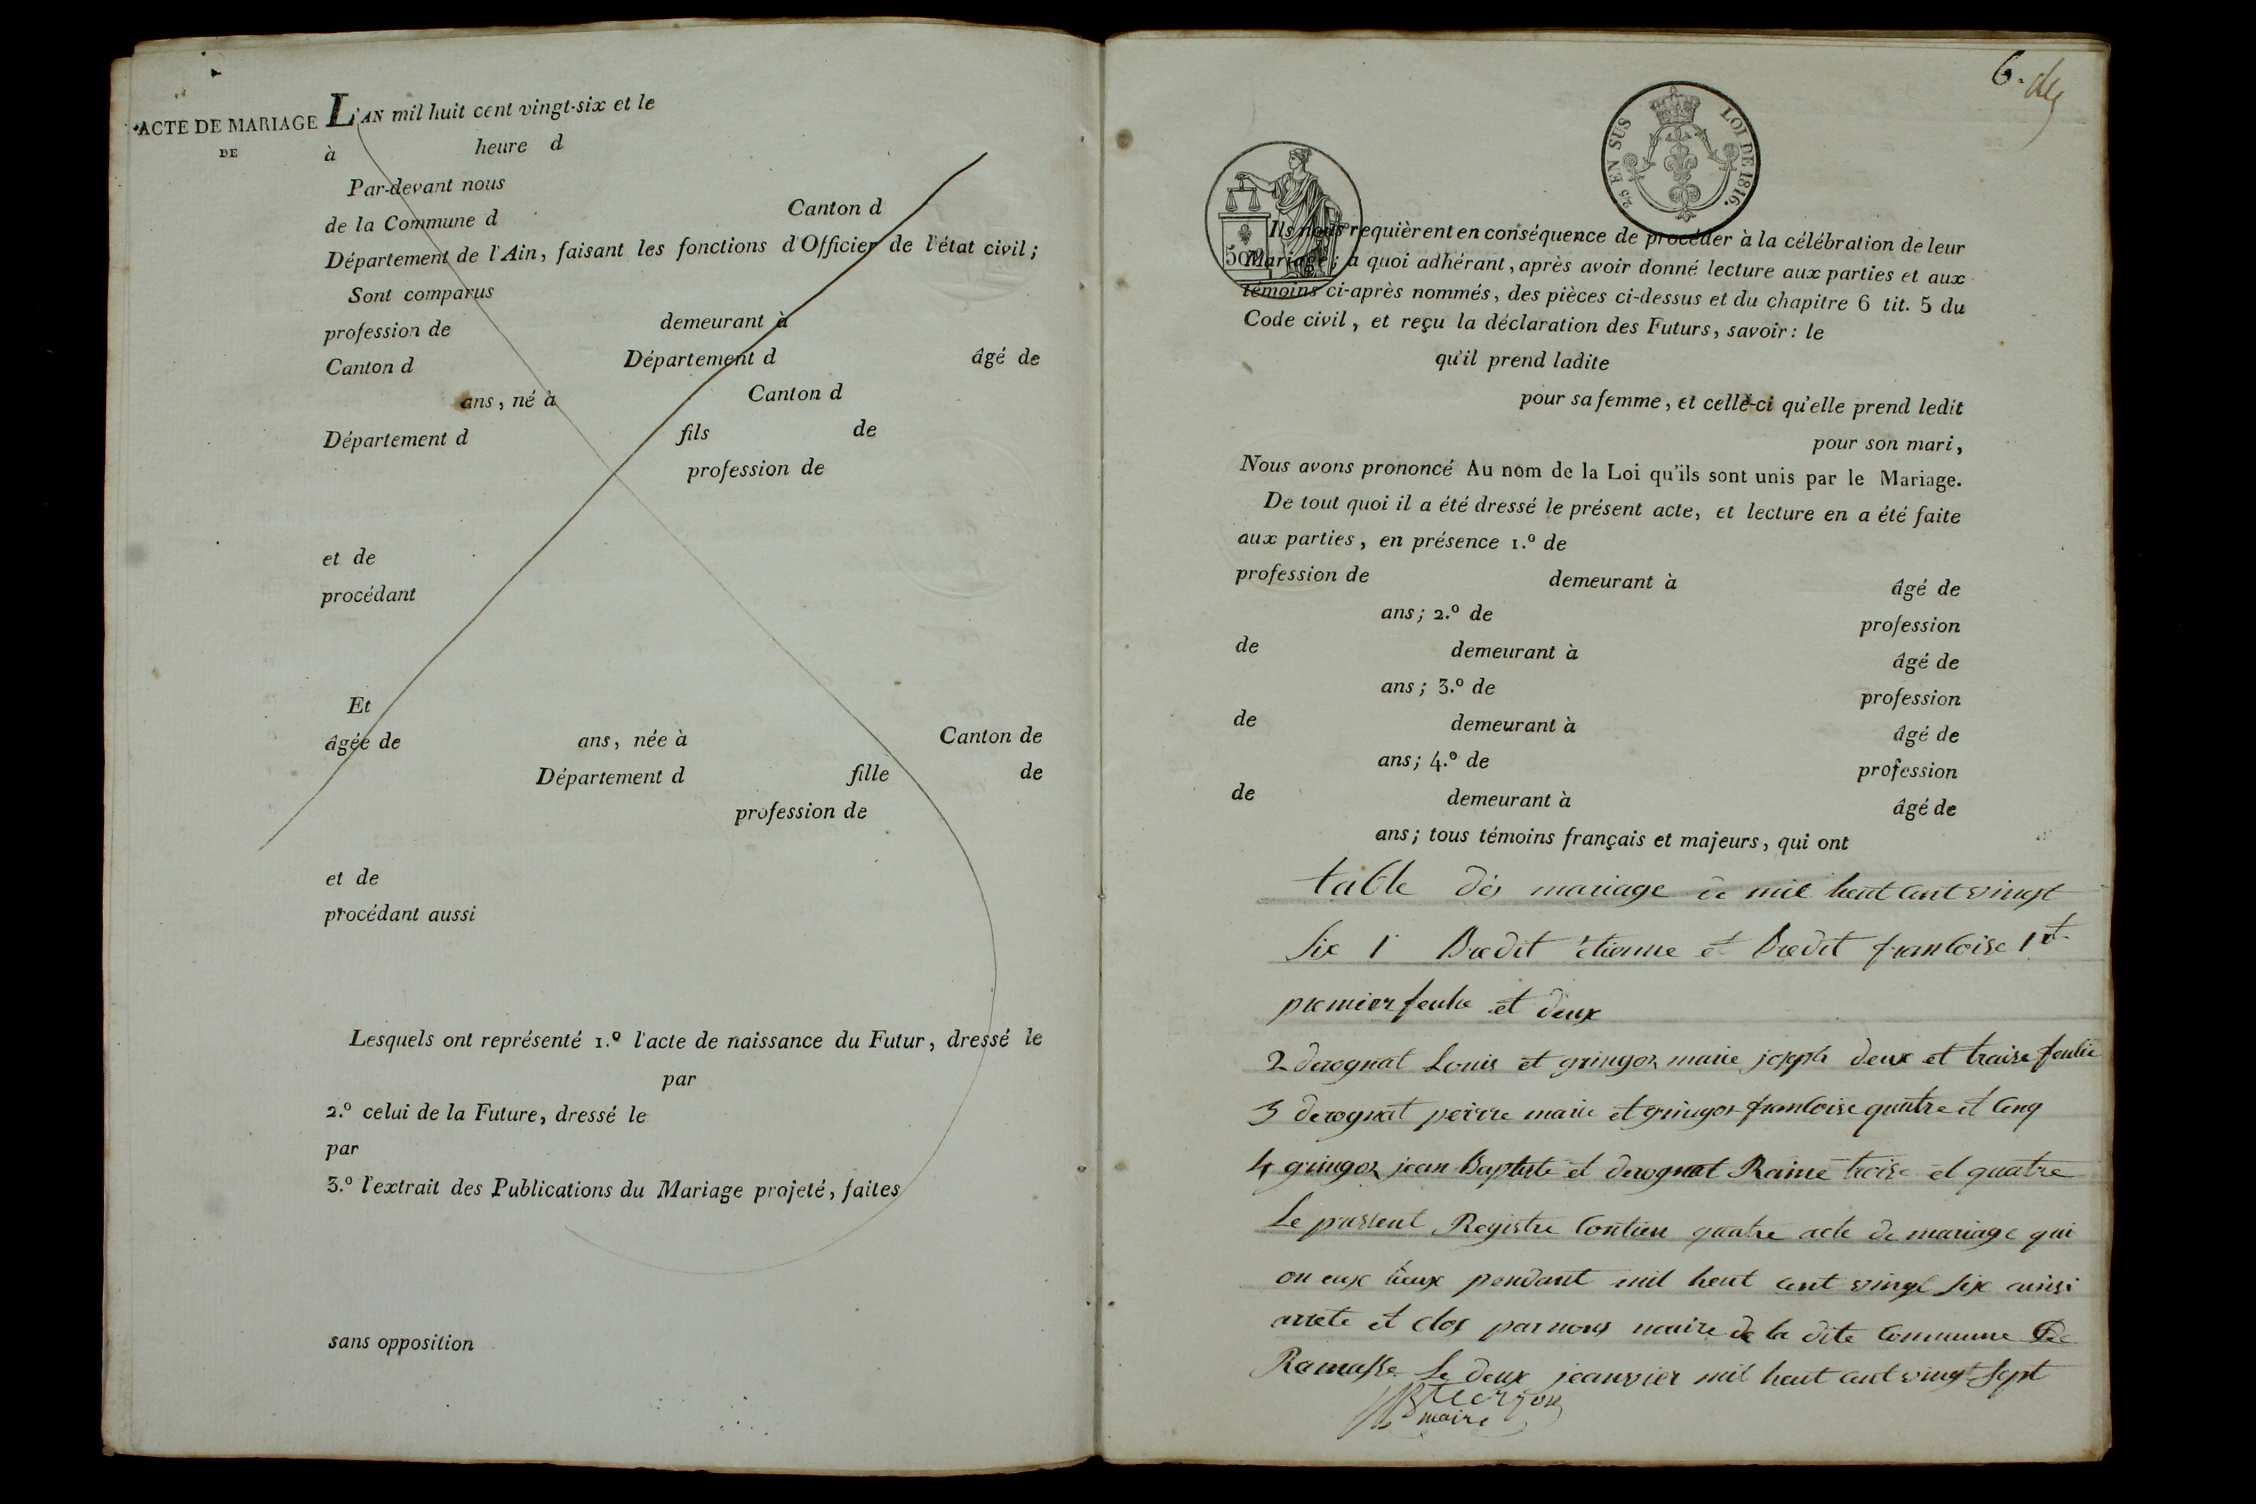 ACTE DE MARIAGE
DE
L'AN mil huit cent vingt-six et le
à heure d
Par-devant nous
de la Commune d Canton d
Département de l'Ain, faisant les fonctions d'Officier de l'état civil;
Sont comparus
profession de demeurant à
Canton d Département d âgé de
ans, né à Canton d
Département d fils de
profession de
et de
procédant
Et
âgée de ans, née à Canton de
Département d fille de
profession de
et de
procédant aussi
Lesquels ont représenté 1.º l'acte de naissance du Futur, dressé le
par
2.º celui de la Future, dressé le
par
3.º l'extrait des Publications du Mariage projeté, faites
sans opposition
6.
25 EN SUS LOI DE 1816.
50
Ils nous requièrent en conséquence de procéder à la célébration de leur
Mariage; à quoi adhérant, après avoir donné lecture aux parties et aux
témoins ci-après nommés, des pièces ci-dessus et du chapitre 6 tit. 5 du
Code civil, et reçu la déclaration des Futurs, savoir: le
qu'il prend ladite
pour sa femme, et celle-ci qu'elle prend ledit
pour son mari,
Nous avons prononcé Au nom de la Loi qu'ils sont unis par le Mariage.
De tout quoi il a été dressé le présent acte, et lecture en a été faite
aux parties, en présence 1.º de
profession de demeurant à âgé de
ans; 2.º de profession
de demeurant à âgé de
ans; 3.º de profession
de demeurant à âgé de
ans; 4.º de profession
de demeurant à âgé de
ans; tous témoins français et majeurs, qui ont
table des mariage de mil heut cent vingt
six 1 Bœdit étienne et Bœdit francoise 1er
premier feulie et deux
2 derognat Louis et gringoz marie joseph deux et traise feulie
3 derognat peirre marie et gringoz francoise quatre et cenq
4 gringoz jean Baptiste et derognat Raine troise et quatre
Le present Registre contien quatre acte de mariage qui
on eux lieux pendant mil heut cent vingt six ainsi
arrete et clos par nous maire de la dite commune de
Ramasse Le deux jeanvier mil heut cent vingt sept
maire